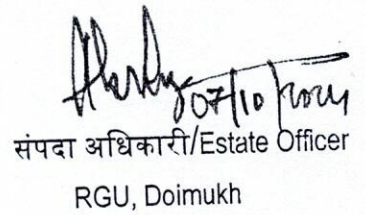 07/10/2024
संपदा अधिकारी/Estate Officer
RGU, Doimukh